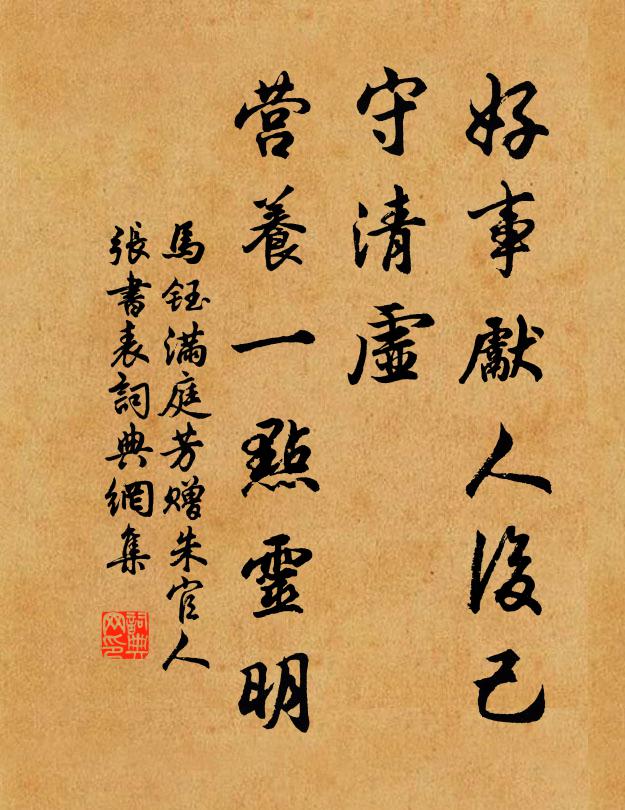 好事獻人後己
守清虛
营養一點靈明
馬鈺滿庭芳赠朱官人
張書表詞典網集
詞典
网印